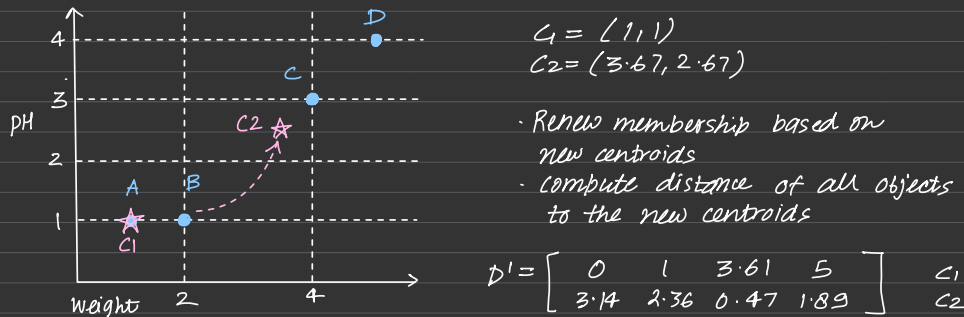 D
4
C
3
PH
C2
2
A
B
1
C1
Weight
2
4
C1 = (1,1)
C2 = (3.67, 2.67)
· Renew membership based on
new centroids
· compute distance of all objects
to the new centroids
D' = [ 0 1 3.61 5 ] C1
3.14 2.36 0.47 1.89 C2